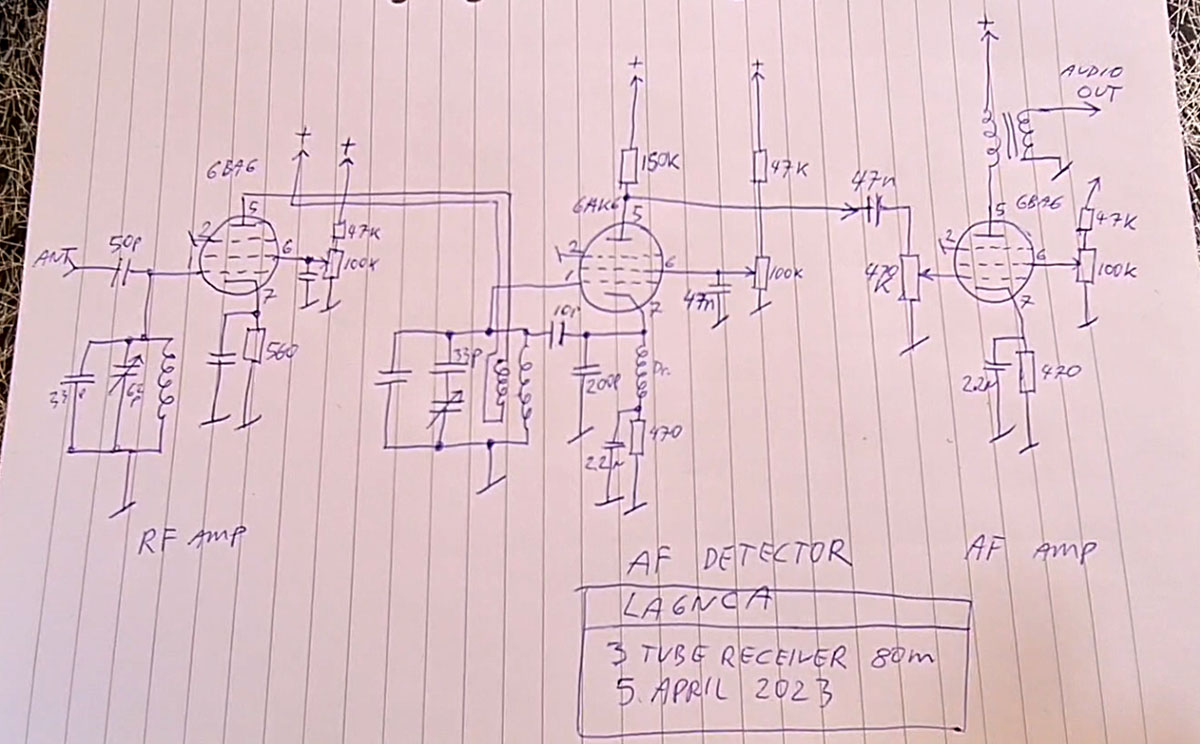 + + + + +
AUDIO
OUT
6BA6
150K
47K
47n
6AK6
5
5
5
6BA6
2
47K
2
2
47K
ANT
50p
1
6
100K
1
6
100K
470
K
6
100K
7
47n
7
7
10p
560
33p
200p
Dr.
470
22µ
33p
470
22µ
RF AMP
AF DETECTOR
AF AMP
LA6NCA
3 TUBE RECEIVER 80m
5. APRIL 2023